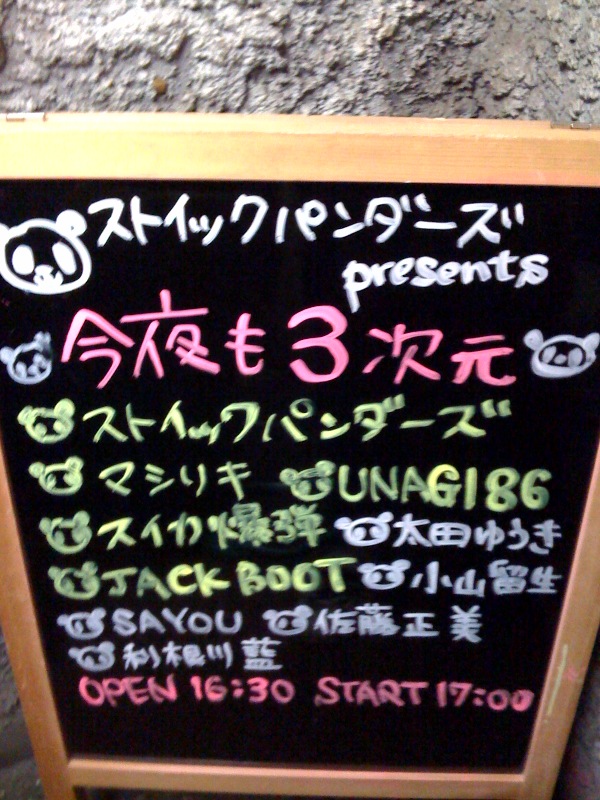 ストイックパンダーズ
presents
今夜も3次元
ストイックパンダーズ
マシリキ UNAGI86
スイカ爆弾 太田ゆうき
JACK BOOT 小山留生
SAYOU 佐藤正美
利根川藍
OPEN 16:30 START 17:00